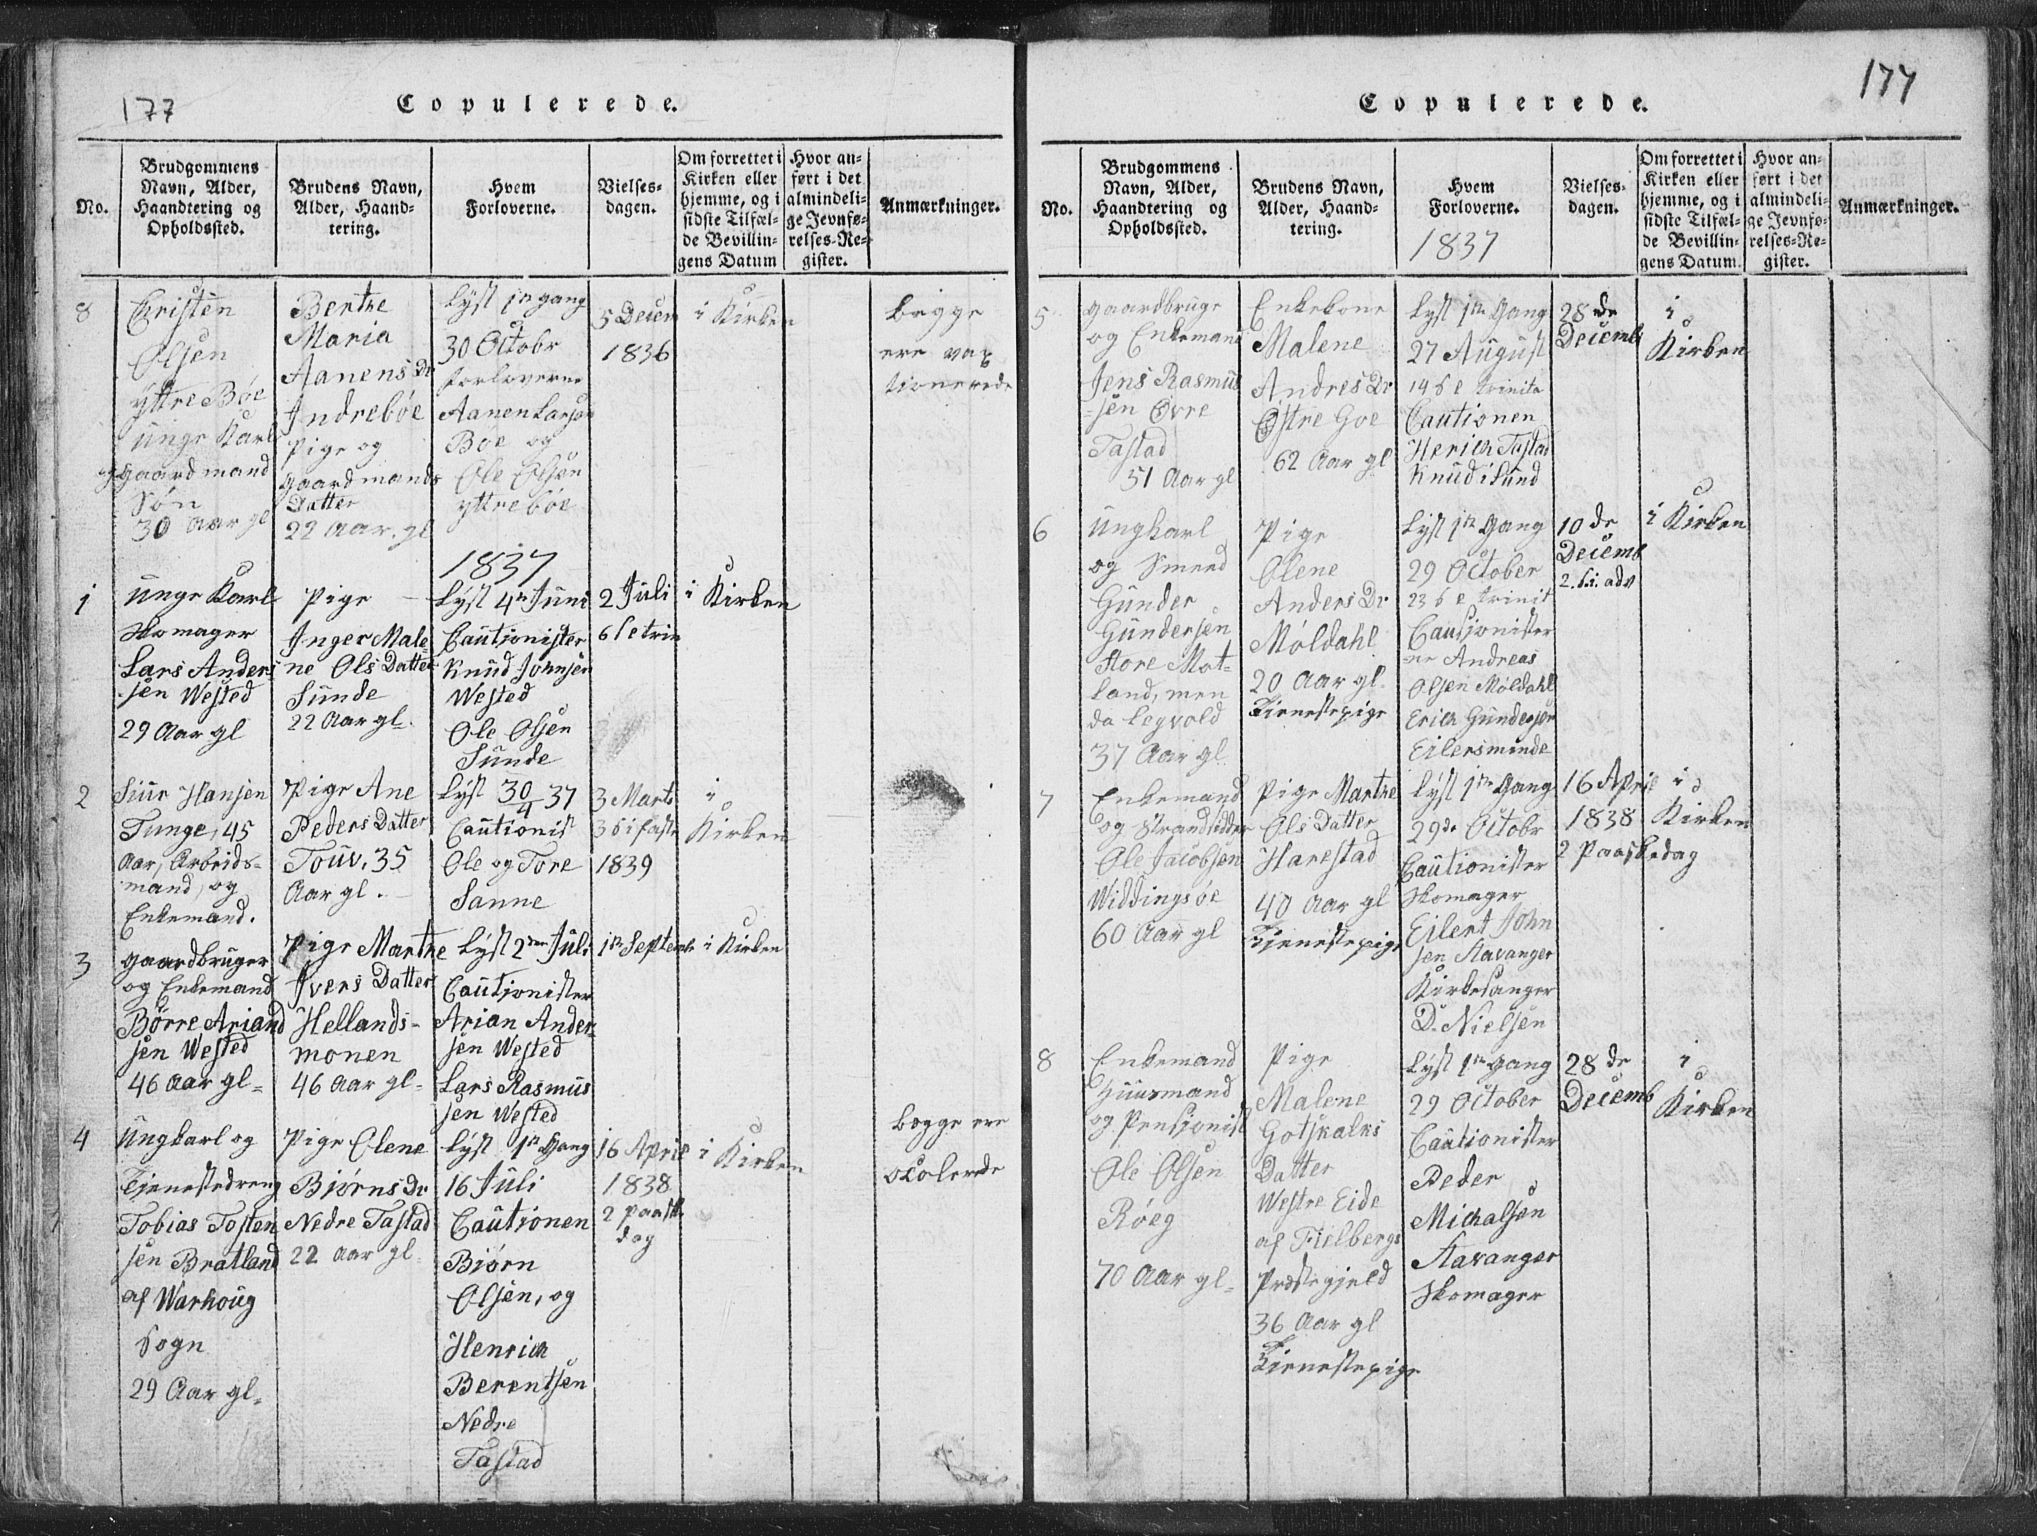 177
Copulerede.
No.
Brudgommens
Navn, Alder,
Haandtering og
Opholdssted.
Brudens Navn,
Alder, Haand-
tering.
Hvem
Forloverne.
Vielses-
dagen.
Om forrettet i
Kirken eller
hjemme, og i
sidste Tilfæl-
de Bevillin-
gens Datum
Hvor an-
ført i det
almindeli-
ge Jevnfø-
relses-Re-
gister.
Anmærkninger.
8
Christen
Olsen
yttre Böe
Unge Karl
og gaardmand
Sön
30 Aar gl
Berthe
Maria
Aanens Dr
Indreböe
Pige og
gaardmands
Datter
22 Aar. gl
Lyst 1te gang
30 Octobr
forloverne
Aanen Larsen
Boe og
Ole Olsen
yttre böe
5 Decem
1836
i Kirken
begge
ere vax
tionerede
1837
1
Unge Karl
Skomager
Lars Anders
sen Wested
29 Aar gl
Pige
Inger Male
ne Ols Datter
Sunde
22 Aar gl.
Lyst 4de Juni
Cautionister
Knud Johnsen
Wested
Ole Olsen
Sunde
2 Juli
6 S e trin
i Kirken
2
Siur Hansen
Tunge, 45
Aar, Arbeids-
mand, og
Enkemand.
Pige Ane
Peders Datter
Touv, 35
Aar gl.
Lyst 30/4 37
Cautionist
Ole og Tore
Sanne
3 Marts
3 S i faste
1839
i
Kirken
3
gaardbruger
og Enkemand
Börre Ariand
sen Wested
46 Aar gl-
Pige Marthe
Ivers Datter
Hellands-
monen
46 Aar gl-
Lyst 2den Juli
Cautionister
Arian Ander-
sen Wested
Lars Rasmus
sen Wested
1te Septemb
i Kirken
4
Ungkarl og
Tjenestedreng
Tobias Tosten
sen Bratland
af Warhoug
Sogn
29 Aar gl-
Pige Olene
Bjørns Dr
Nedre Tastad
22 Aar gl
Lyst 1te Gang
16 Juli
Cautionen
Biörn
Olsen, og
Henrich
Berentsen
Nedre
Tastad
16 April
1838
2 paaske
dag
i Kirken
begge ere
ocolerede
177
Copulerede.
No.
Brudgommens
Navn, Alder,
Haandtering og
Opholdssted.
Brudens Navn,
Alder, Haand-
tering.
Hvem
Forloverne.
1837
Vielses-
dagen.
Om forrettet i
Kirken eller
hjemme, og i
sidste Tilfæl-
de Bevillin-
gens Datum.
Hvor an-
ført i det
almindeli-
ge Jevnfø-
relses-Re-
gister.
Anmærkninger.
5
gaardbruge
og Enkemand
Jens Rasmus
-sen Övre
Tastad
51 Aar gl
Enkekone
Malene
Andres Dr
Östre Goe
62 Aar gl
Lyst 1te Gang
27 August
14 S e trinita
Cautionen
Herich Tastad
Knud i Sund
28 de
Decemb
i
Kirken
6
Ungkarl
og Smeed
Gunder
Gundersen
Store Mot-
land, men
da Legvold
37 Aar gl.
Pige
Olene
Anders Dr
Möldahl
20 Aar gl.
Tienestepige
Lyst 1te Gang
29 October
23 S e trinit
Causjonister
ne Andreas
Olsen Möldahl
Erich Gundersen
Eilersminde
10 de
Decemb
2. S. i. adv
i Kirken
7
Enkemand
og Strandsidder
Ole Jacobsen
Widdingsöe
60 Aar gl
Pige Marthe
Ols Datter
Harestad
40 Aar gl
Tjenestepige
Lyst 1te Gang
29de Octobr
Cautionister
Skomager
Eilert John
sen Stavanger
Kirkesanger
D. Nielsen
16 April
1838
2 Paaskedag
i
Kirken
8
Enkemand
Huusmand
og Pensjonist
Ole Olsen
Röeg
70 Aar gl-
Pige
Malene
Gotskalks
Datter
Westre Eide
af Fielbergs
Præstegjeld
36 Aar gl
Tienestepige
Lyst 1te Gang
29 October
Cautionister
Peder
Michalsen
Stavanger
Skomager
28 de
Decemb
i
Kirken